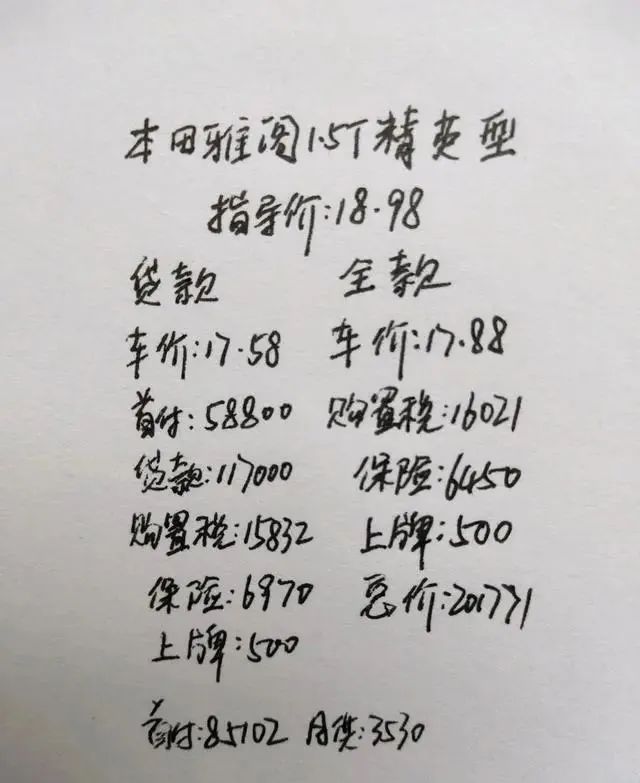 本田雅阁1.5T精英型
指导价:18.98
贷款
车价:17.58
首付:58800
贷款:117000
购置税:15832
保险:6970
上牌:500
全款
车价:17.88
购置税:16021
保险:6450
上牌:500
总价:201771
首付:85102 月供:3530